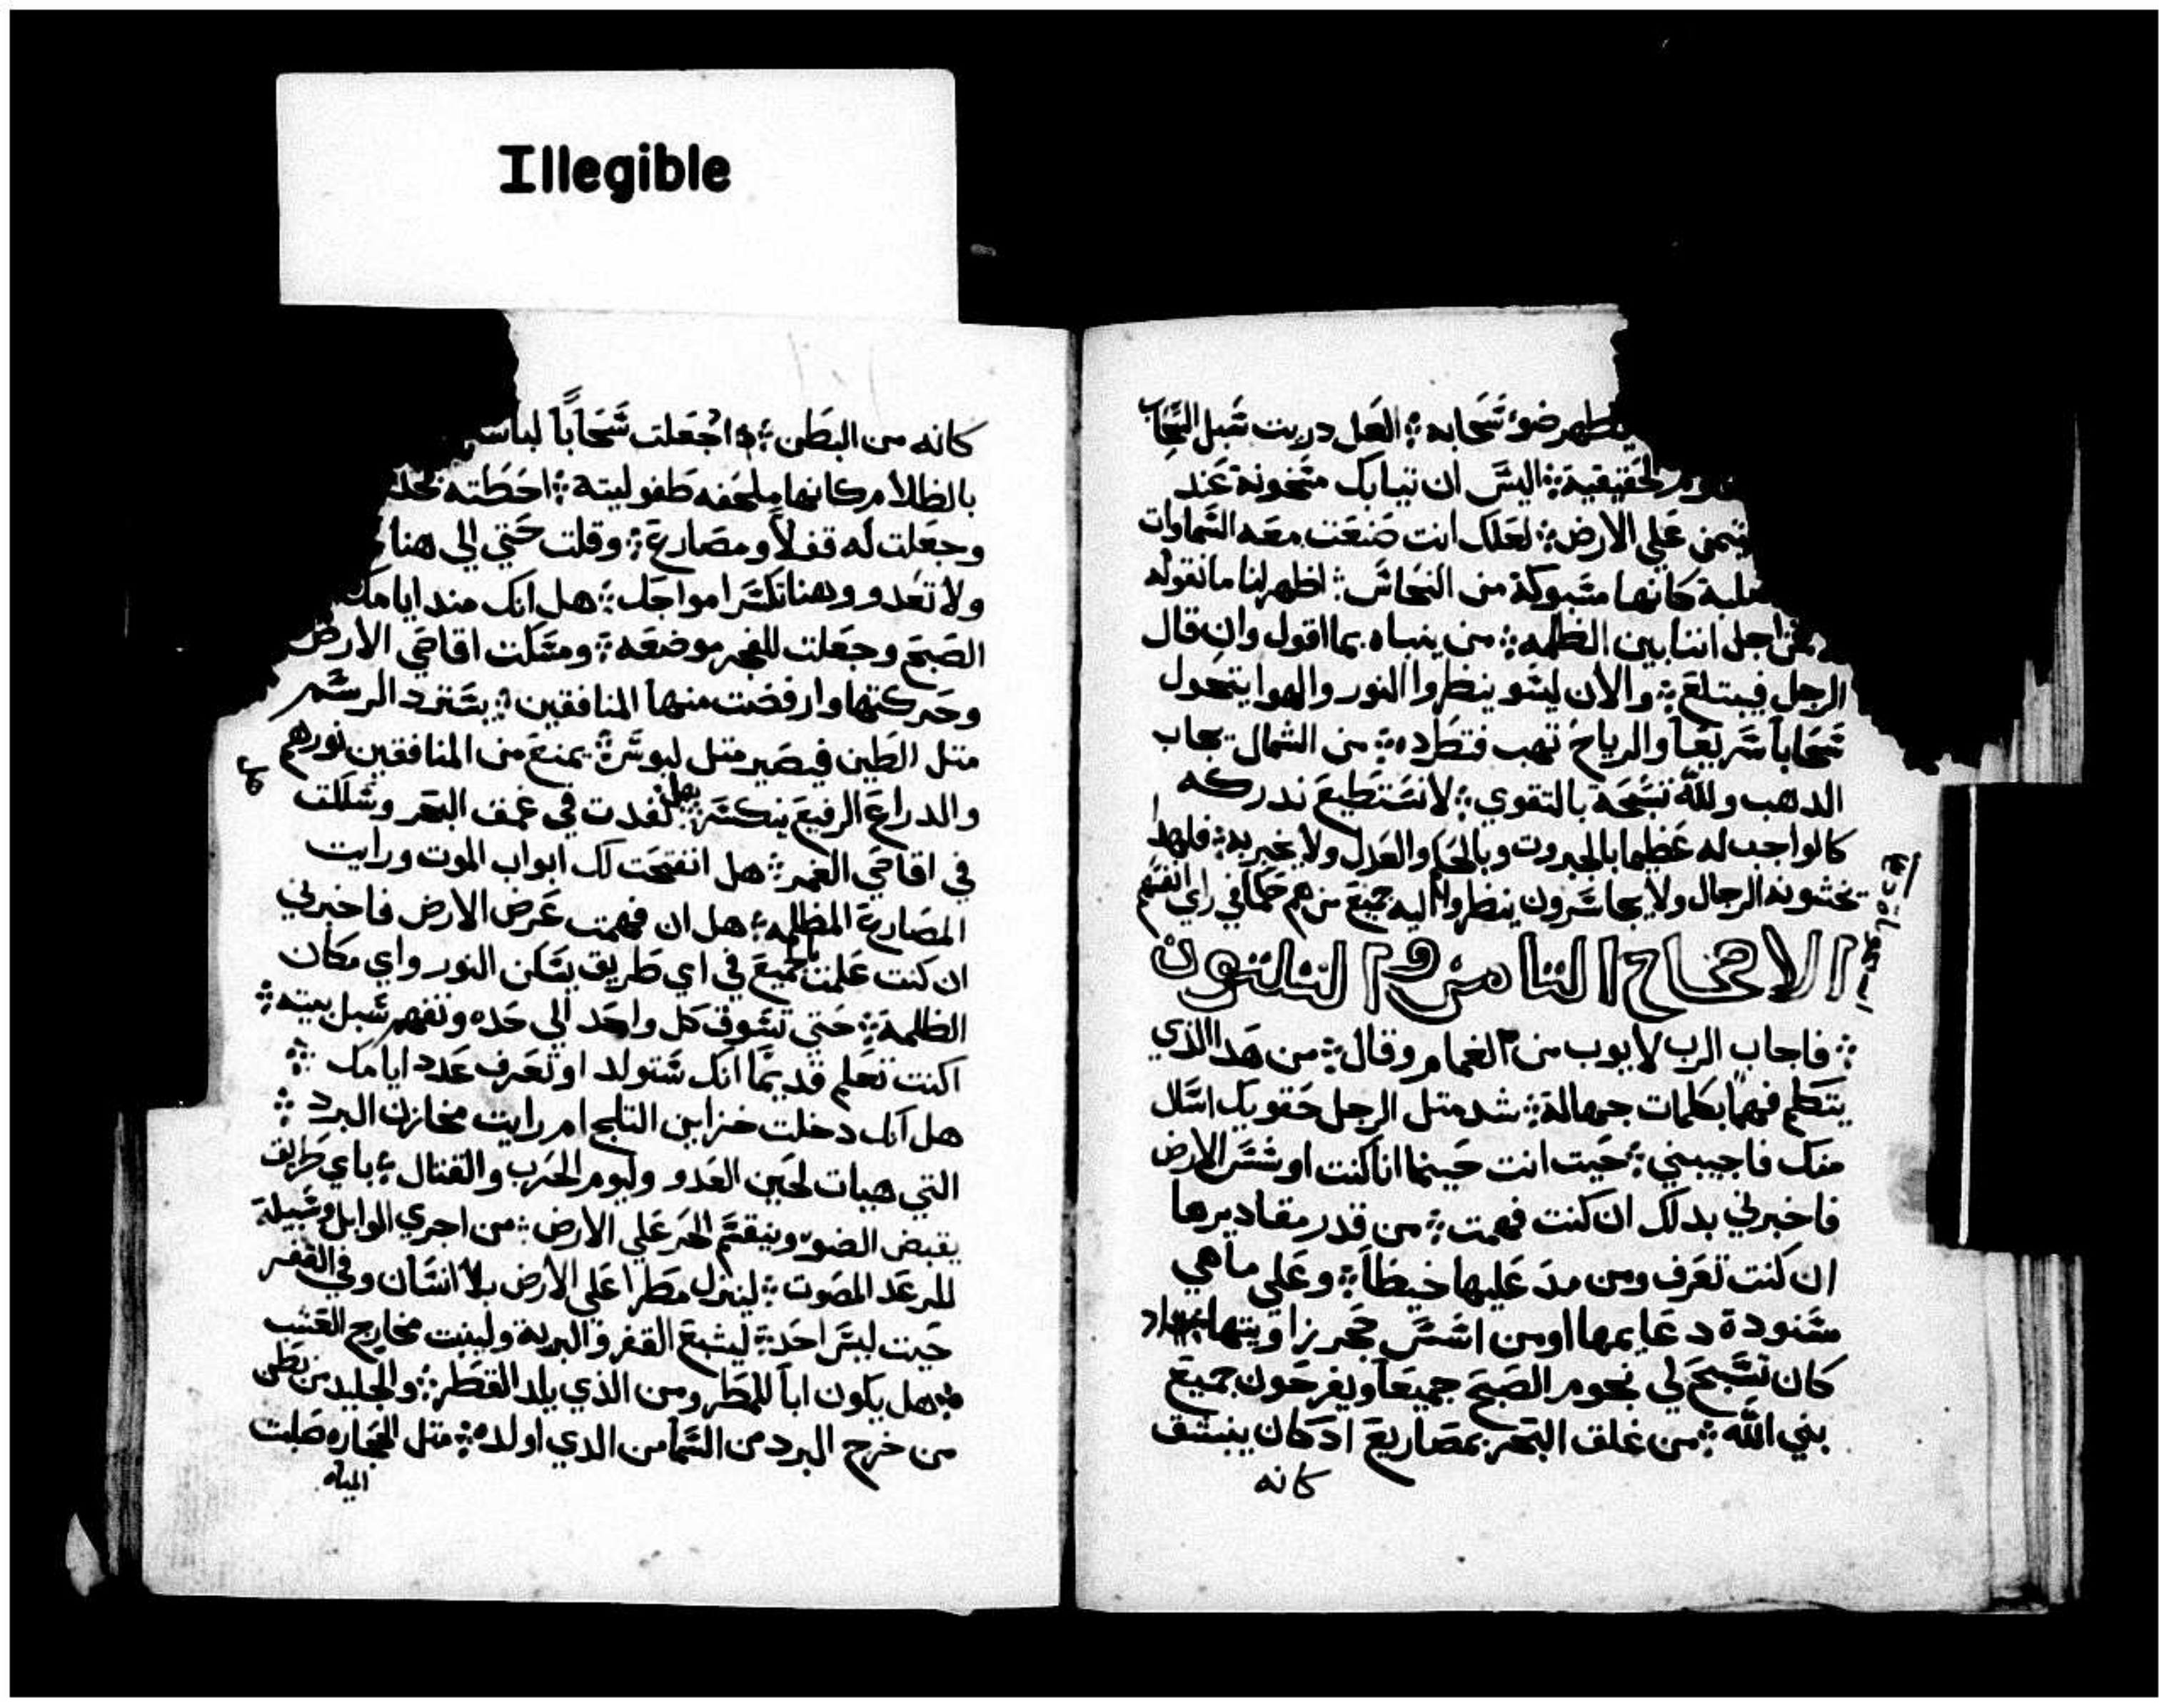 Illegible
ضوء سحابه ؞ العل دريت سبل السحاب
الحقيقية ؞ اليس ان تيابك متخونة عند
علي الارض ؞ لعلك انت صنعت معه السماوات
كانها مسبوكة من النحاس ؞ اظهر لنا ما نقوله
اجل اننا بين الظلمه ؞ من ينباه بما اقول وان قال
الرجل فيبتلع ؞ والان ليسو ينظروا النور والهوا يتحول
سحاباً سريعاً والرياح تهب فتطرده ؞ من الشمال تجاب
الدهب ولله تسبحة بالتقوي ؞ لا نستطيع ندركه
كالواجب له عظيما بالجبروت وبالحكم والعدل ولا يخبر به ؞ فلهدا
تخشونه الرجال ولا يجاسرون ينظروا اليه جميع من هم حكما في راي انفسهم
الاصحاح التامن و التلتون
؞ فاجاب الرب لايوب من الغمام وقال ؞ من هدا الذي
يتكلم فهماً بكلمات جهالة ؞ شد متل الرجل حقويك اسال
منك فاجيبني ؞ حيت انت حينما انا كنت اوسس الارض
فاخبرني بدلك ان كنت فهمت ؞ من قدر مقاديرها
ان كنت تعرف ومن مد عليها خيطاً ؞ وعلي ماهي
مسنودة دعايمها او من اسس حجر زاويتها
كان تسبح لي نجوم الصبح جميعاً ويفرحون جميع
بني الله ؞ من غلق البحر بمصاريع ادكان ينبتق
كانه
كانه من البطن ؞ اجعلت سحاباً لباسه
بالظلام كانها ملحفه طفوليته ؞ احطته
وجعلت له قفلاً ومصارع ؞ وقلت حتي الي هنا
ولا تعدو وهنا تكسر امواجك ؞ هل انك مند ايامك
الصبح وجعلت للفجر موضعه ؞ ومسكت اقاصي الارض
وحركتها وارفضت منها المنافقين ؞ يسترد الرسم
متل الطين فيصير متل لبوس ؞ يمنع من المنافقين نورهم
والدراع الرفيع ينكسر ؞ هل نفدت في عمق البحر وسلكت
في اقاصي الغمر ؞ هل انفتحت لك ابواب الموت ورايت
المصارع المظلمه ؞ هل ان فهمت عرض الارض فاخبرني
ان كنت علمت بالجميع في اي طريق يسكن النور واي مكان
الظلمة ؞ حتي تسوق كل واحد الي حده وتفهم سبل بيته ؞
اكنت تعلم قديمًا انك ستولد او تعرف عدد ايامك ؞
هل انك دخلت خزاين التلج ام رايت مخازن البرد ؞
التي هيات لحين العدو وليوم الحرب والقتال ؞ باي طريق
يقبض الضوء وينقسم الحر علي الارض ؞ من اجري الوابل وسبيلة
للرعد المصوت ؞ لينزل مطرا علي الارض بلا انسان وفي القفر
حيت ليس احد ؞ ليشبع القفر والبرية ولينبت مخارج العشب
؞ هل يكون اباً للمطر ومن الذي يلد القطر ؞ والجليد من بطن
من خرج البرد من السما من الدي اولده ؞ متل الحجاره صلبت
المياه